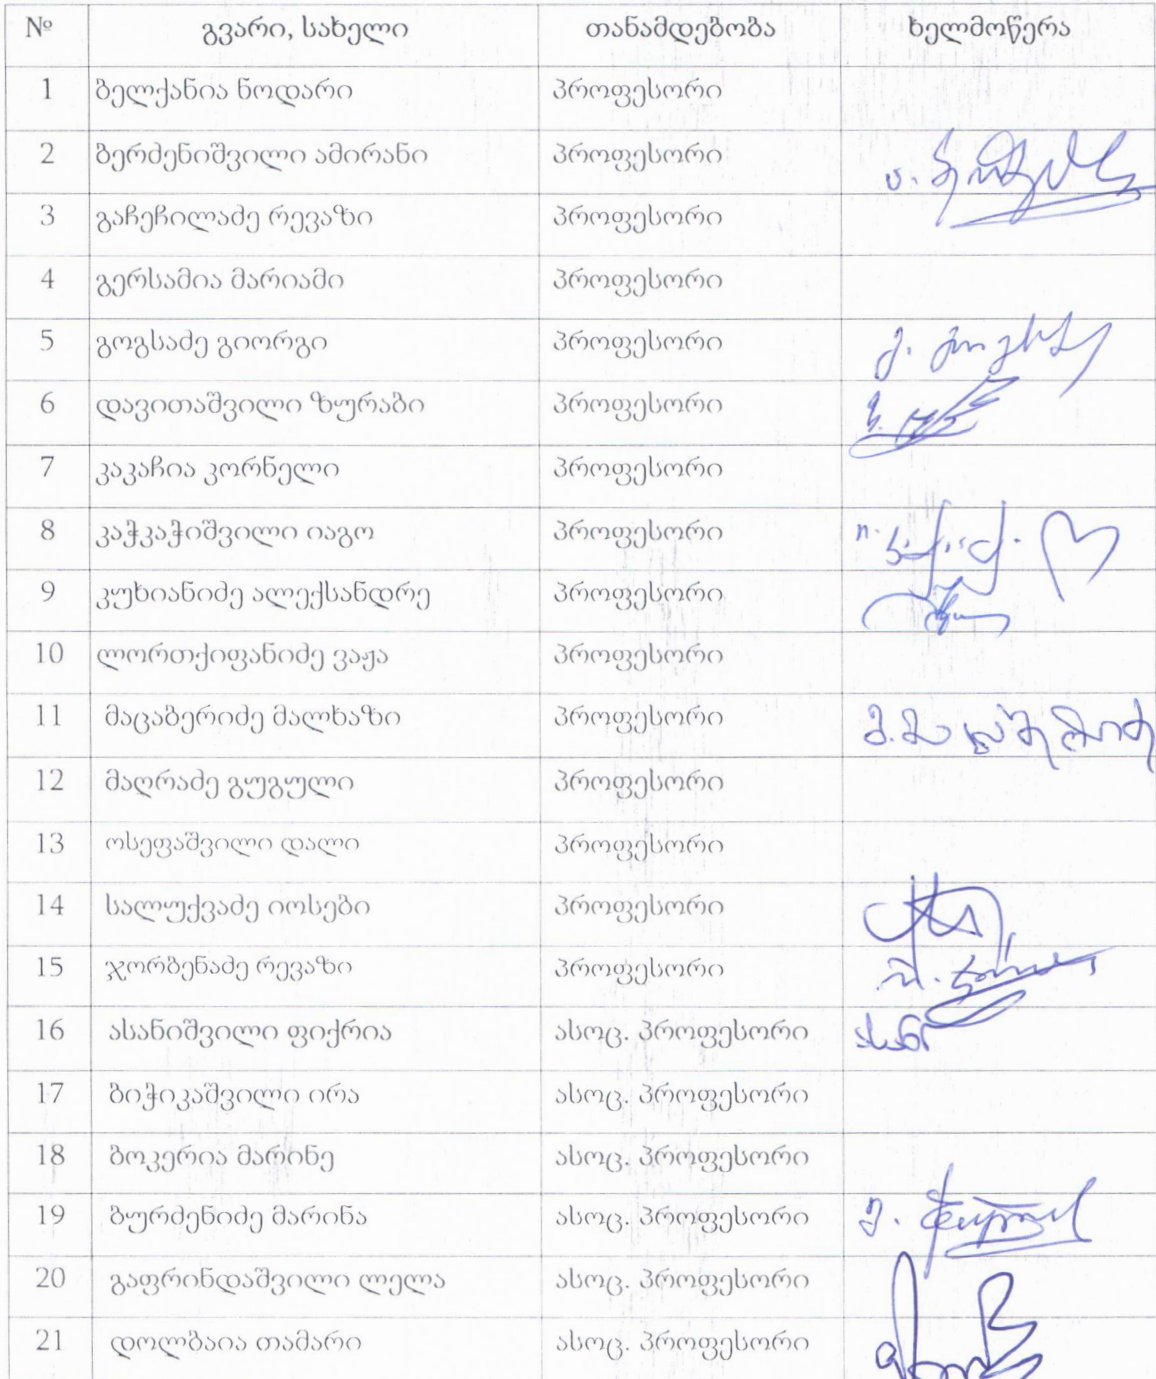 № გვარი, სახელი თანამდებობა ხელმოწერა
1 ბელქანია ნოდარი პროფესორი
2 ბერძენიშვილი ამირანი პროფესორი
3 გაჩეჩილაძე რევაზი პროფესორი
4 გერსამია მარიამი პროფესორი
5 გოგსაძე გიორგი პროფესორი
6 დავითაშვილი ზურაბი პროფესორი
7 კაკაჩია კორნელი პროფესორი
8 კაჭკაჭიშვილი იაგო პროფესორი
9 კუხიანიძე ალექსანდრე პროფესორი
10 ლორთქიფანიძე ვაჟა პროფესორი
11 მაცაბერიძე მალხაზი პროფესორი მ. მაცაბერიძე
12 მაღრაძე გუგული პროფესორი
13 ოსეფაშვილი დალი პროფესორი
14 სალუქვაძე იოსები პროფესორი
15 ჯორბენაძე რევაზი პროფესორი
16 ასანიშვილი ფიქრია ასოც. პროფესორი
17 ბიჭიკაშვილი ირა ასოც. პროფესორი
18 ბოკერია მარინე ასოც. პროფესორი
19 ბურძენიძე მარინა ასოც. პროფესორი
20 გაფრინდაშვილი ლელა ასოც. პროფესორი
21 დოლბაია თამარი ასოც. პროფესორი